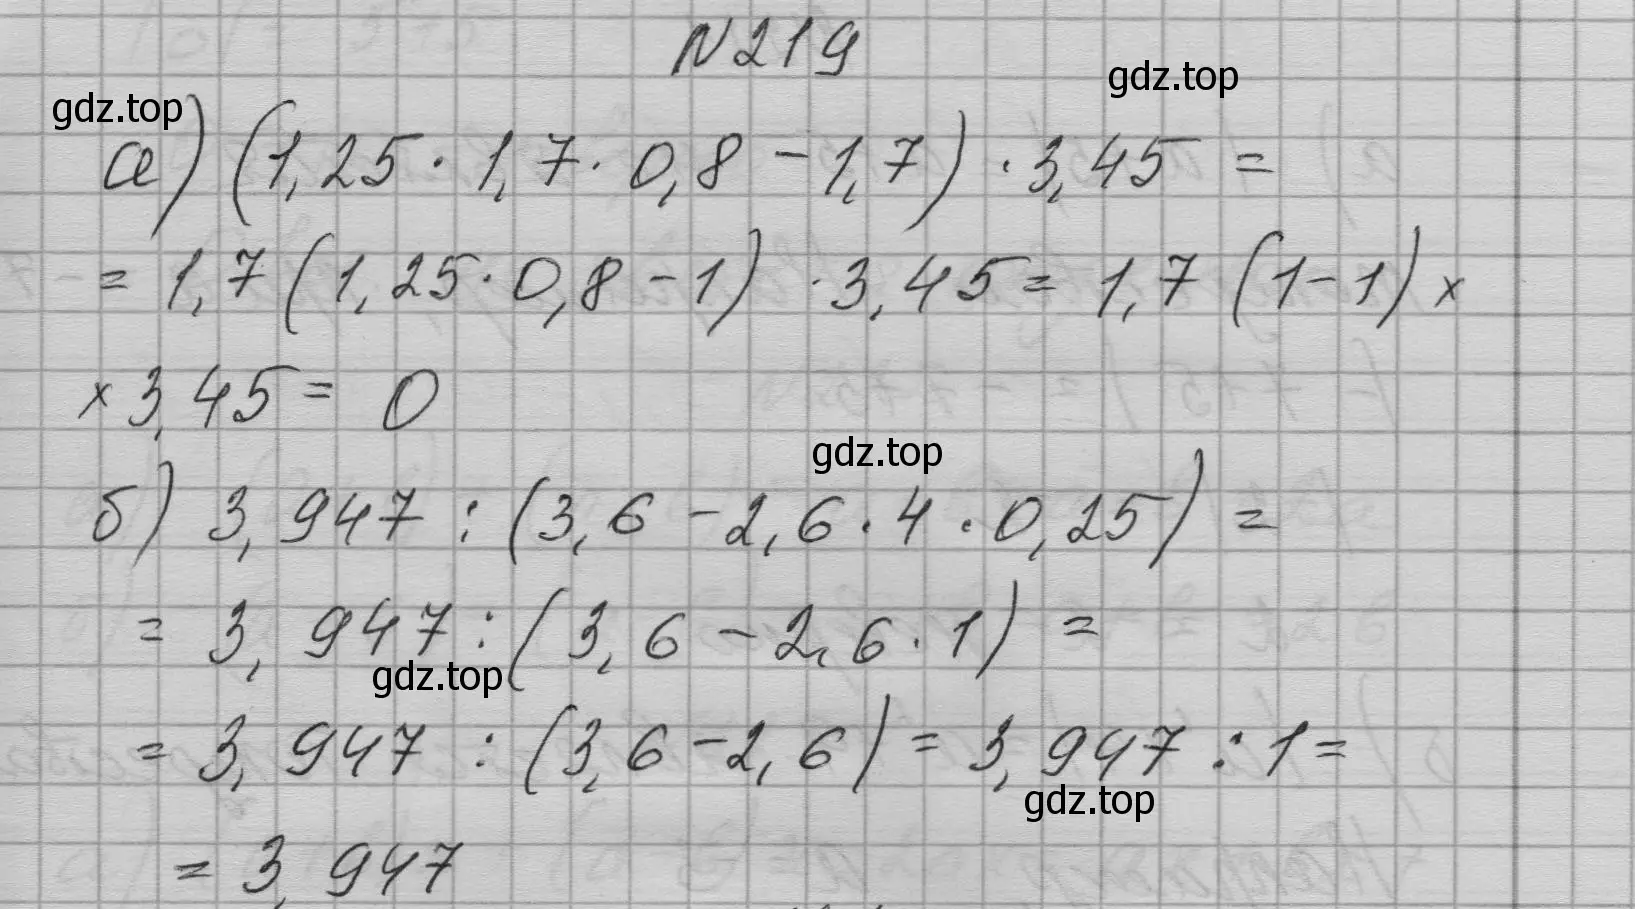 N219
gdz.top
gdz.top
а) (1,25 · 1,7 · 0,8 - 1,7) · 3,45 =
= 1,7 (1,25 · 0,8 - 1) · 3,45 = 1,7 (1 - 1) ×
× 3,45 = 0
gdz.top
б) 3,947 : (3,6 - 2,6 · 4 · 0,25) =
= 3,947 : (3,6 - 2,6 · 1) =
gdz.top
= 3,947 : (3,6 - 2,6) = 3,947 : 1 =
gdz.top
= 3,947